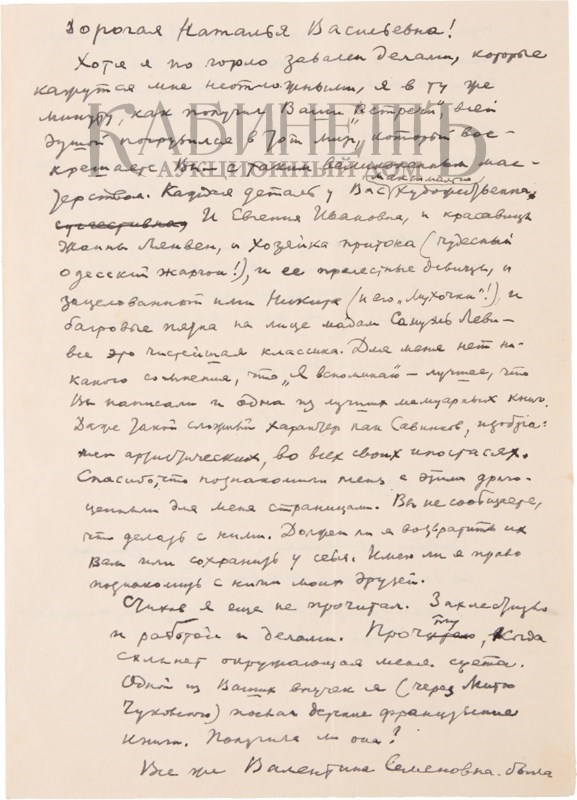 Дорогая Наталья Васильевна!
Хотя я по горло завален делами, которые
кажутся мне неотложными, я в ту же
минуту, как получил Ваши "Встречи", всей
душой погрузился в тот мир, который вос-
крешаете Вы с таким великолепным мас-
терством. Каждая деталь у Вас художественна,
И Евгения Ивановна, и красавица
Жанна Лянвен, и хозяйка притона (чудесный
одесский жаргон!), и ее прелестные девицы, и
зацелованный ими Никита (и его "Мухочки"!), и
багровые пятна на лице мадам Самуэль Леви –
все это чистейшая классика. Для меня нет ни-
какого сомнения, что "Я вспоминаю" – лучшее, что
Вы написали и одна из лучших мемуарных книг.
Даже такой сложный характер как Савинков, изобра-
жен артистически, во всех своих ипостасях.
Спасибо, что познакомили меня с этими драго-
ценными для меня страницами. Вы не сообщаете,
что делать с ними. Должен ли я возвратить их
Вам или сохранить у себя. Имею ли я право
познакомить с ними моих друзей.
я еще не прочитал. Захлебываюсь
и работой и делами. Прочту, когда
схлынет окружающая меня суета.
Одной из Ваших внучек я (через Митю
Чуковского) послал детские французские
книги. Получила ли она?
Все же Валентина Семеновна была
КАБИНЕТЪ
АУКЦИОННЫЙ ДОМ